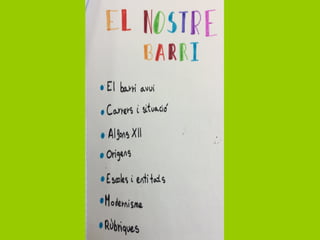 EL NOSTRE
BARRI
El barri avui
Carrers i situació
Alfons XII
Orígens
Escoles i entitats
Modernisme
Rúbriques